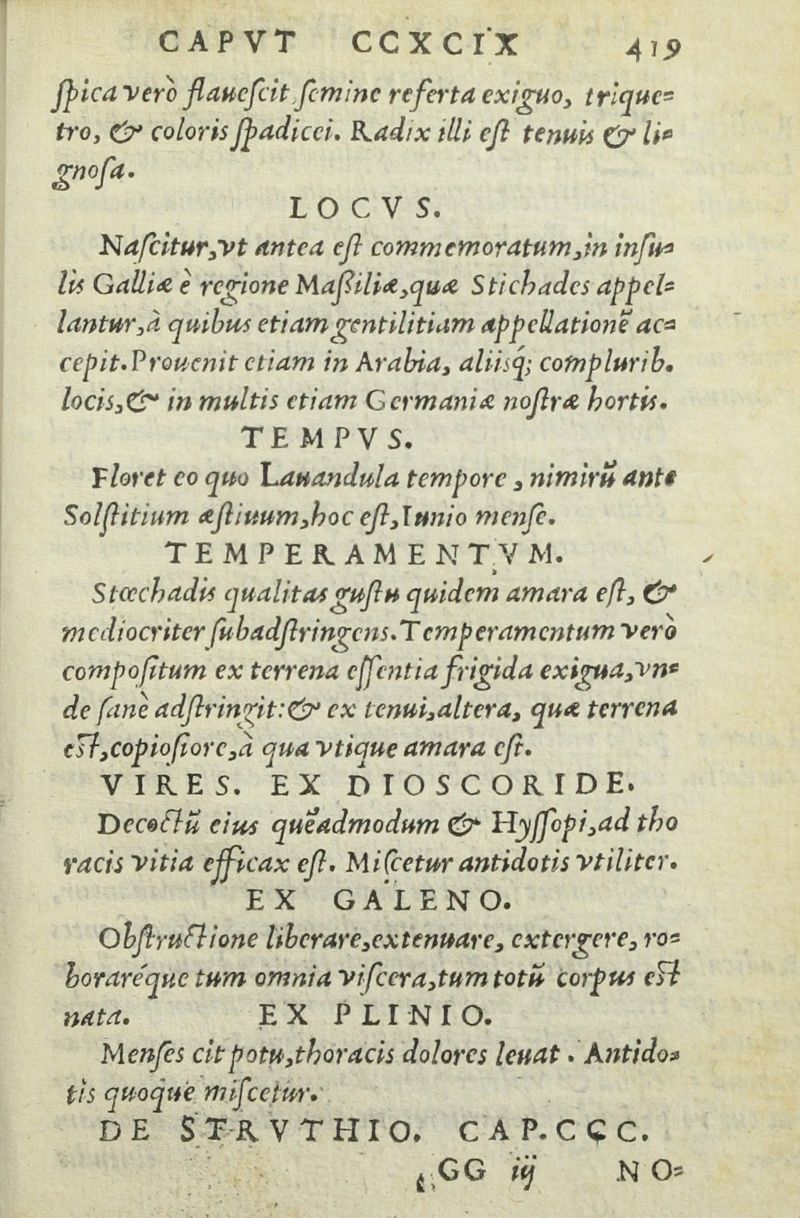 CAPVT CCXCIX 419
ſpica verò flaueſcit ſemine referta exiguo, trique=
tro, & coloris ſpadicei. Radix illi eſt tenuis & li=
gnoſa.
LOCVS.
Naſcitur,vt antea eſt commemoratum,in inſu=
lis Galliæ è regione Maſsiliæ,quæ Stichades appel=
lantur,à quibus etiam gentilitiam appellationẽ ac=
cepit.Prouenit etiam in Arabia, aliisq́; complurib.
locis,& in multis etiam Germaniæ noſtræ hortis.
TEMPVS.
Floret eo quo Lauandula tempore, nimirũ ante
Solſtitium æſtiuum,hoc eſt,Iunio menſe.
TEMPERAMENTVM.
Stœchadis qualitas guſtu quidem amara eſt, &
mediocriter ſubadſtringens.Temperamentum verò
compoſitum ex terrena eſſentia frigida exigua,vn=
de ſanè adſtringit:& ex tenui,altera, quæ terrena
eſt,copioſiore,à qua vtique amara eſt.
VIRES. EX DIOSCORIDE.
Decoctũ eius quẽadmodum & Hyſſopi,ad tho
racis vitia efficax eſt. Miſcetur antidotis vtiliter.
EX GALENO.
Obſtructione liberare,extenuare, extergere, ro=
boraréque tum omnia viſcera,tum totũ corpus eſt
nata. EX PLINIO.
Menſes cit potu,thoracis dolores leuat. Antido=
tis quoque miſcetur.
DE STRVTHIO. CAP.CCC.
GG iij NO=